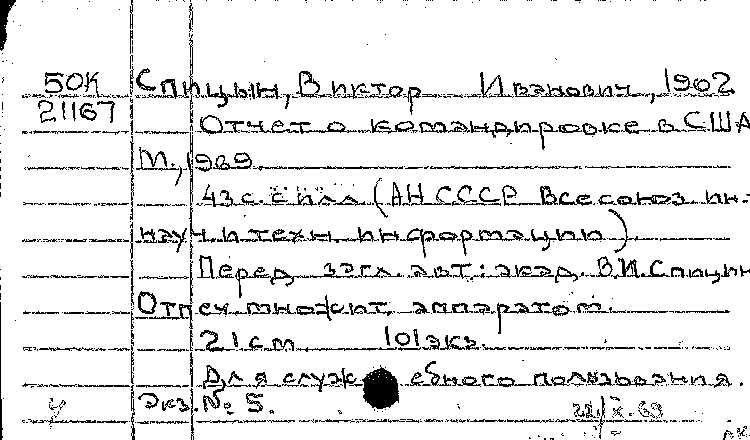 50К Спицын, Виктор Иванович, 1902
21167 Отчет о командировке в США
М., 1969.
43 с. с илл (АН СССР Всесоюз ин-
науч. и техн. информации).
Перед загл. авт: акад. В.И. Спицин
Отпеч. множит. аппаратом.
21 см 101 экз.
Для служебного пользования.
Экз. № 5.